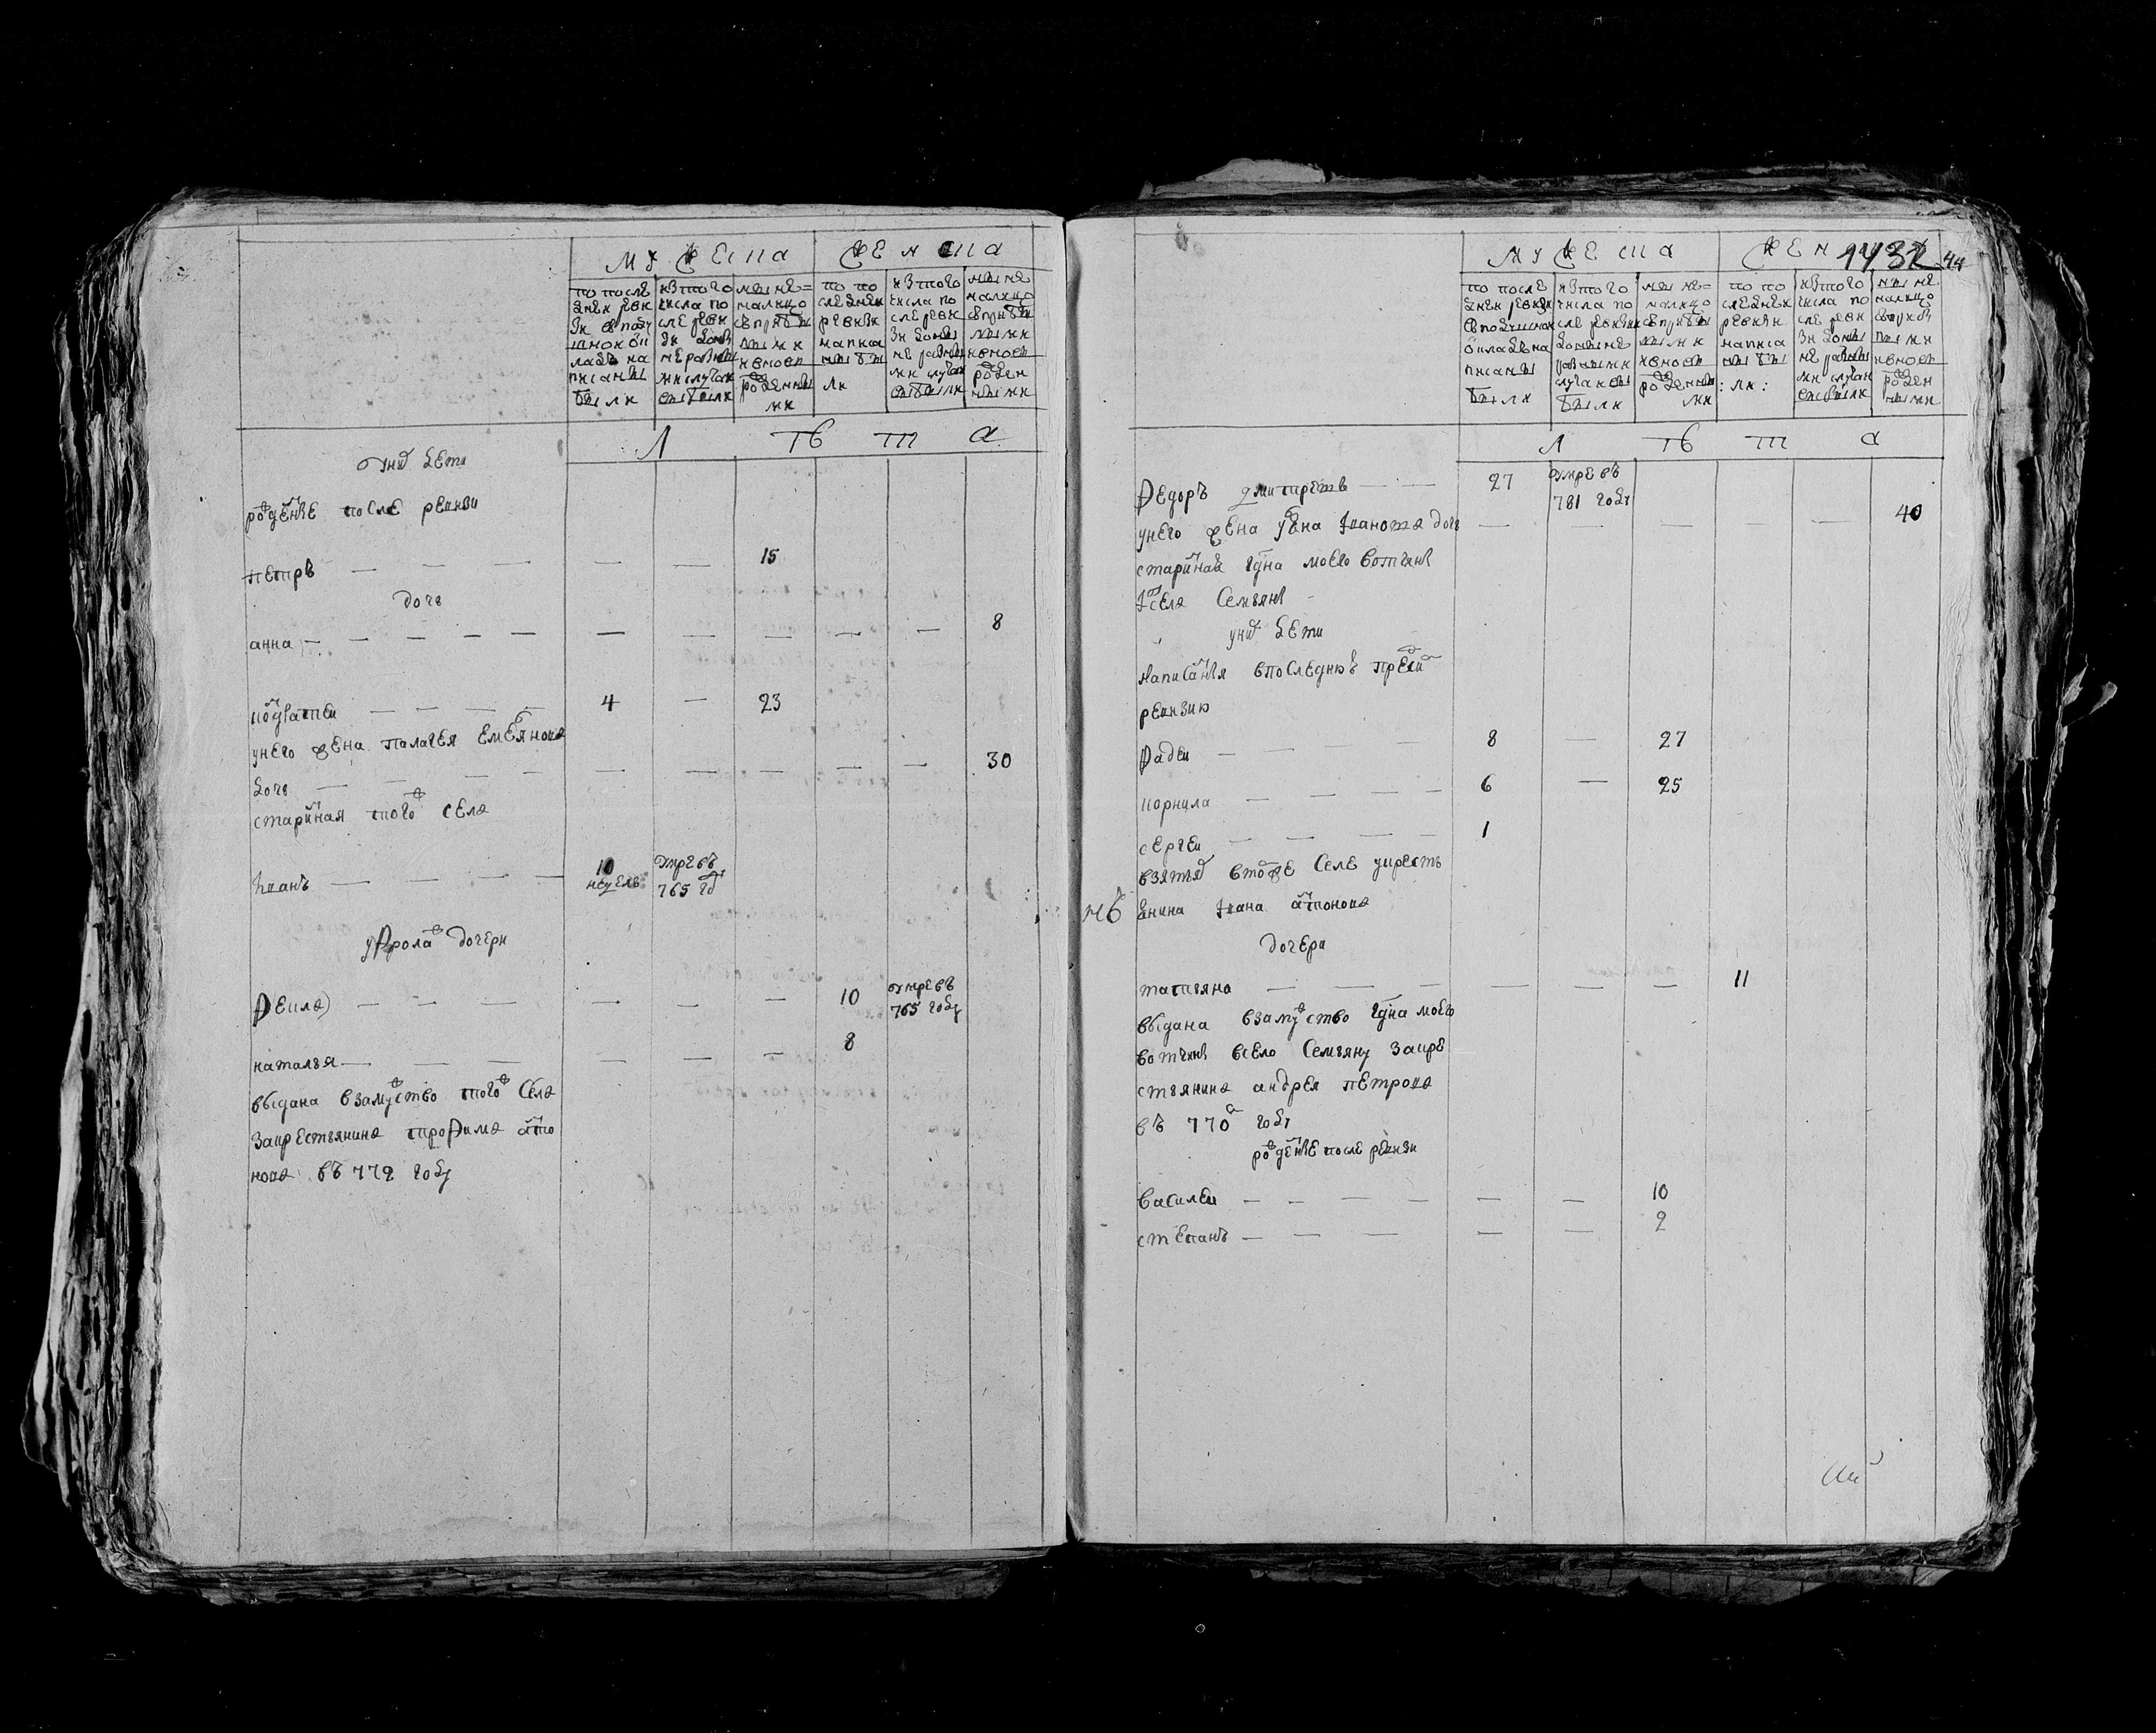 мужеска
женска
по после
дней реви
зи в подуш
ной ок
ладъ на
писаны
были
из того
числа по
сле реви
зи домы
не разны
ми случаи
выбыли
ныне
налицо
с прибы
лыми
и вновь
рожденны
ми
по по
следней
ревизи
написа
ны бы
ли
из того
числа по
сле реви
зи домы
не разны
ми случаи
выбыли
ныне
налицо
с прибы
лыми
и вновь
рожден
ными
лѣта
у них дети
рожденые после ревизи
петръ — — — — — 15
дочь
анна — — — — — — — — — — 8
кондратеи — — — — 4 — 23
у него жена палагея емельянова
дочь — — — — — — — — — 30
старинная того ж села
иванъ — — — — 10 недель умре въ 765 гду
у фрола ж дочери
фекла — — — — — — 10 умре въ 765 году
наталья — — — — — — 8
выдана взамужство того ж села
за крестьянина трофима анто
нова въ 772 году
1432 44
мужеска
жен
по после
дней ревизи
в подушной
окладѣ на
писаны
были
из того
числа по
сле ревизи
домы не
разными
случаи вы
были
ныне
налицо
с прибы
лыми
и вновь
рожденны
ми
по по
следней
ревизи
написа
ны бы
ли:
из того
числа по
сле реви
зи домы
не разны
ми случаи
выбыли
ныне
налицо
с прибы
лыми
и вновь
рожден
ными
лѣта
федоръ дмитреевъ — — 27 умре въ 781 году
у него жена улена иванова дочь — — — — — 40
старинная гдна моего вотчины
из села семьяны
у них дети
написаныя в последнюю пред сим
ревизию
фадеи — — — — 8 — 27
корнила — — — — 6 — 25
сергеи — — — — 1
взят в то же селе у кресть
енина ивана антонова
нб
дочери
татьяна — — — — — — — 11
выдана взамужство гдна моего
вотчины в село семьяну за кре
стьянина андрея петрова
въ 770м году
рожденые после ревизи
василеи — — — — — — 10
степанъ — — — — — 2